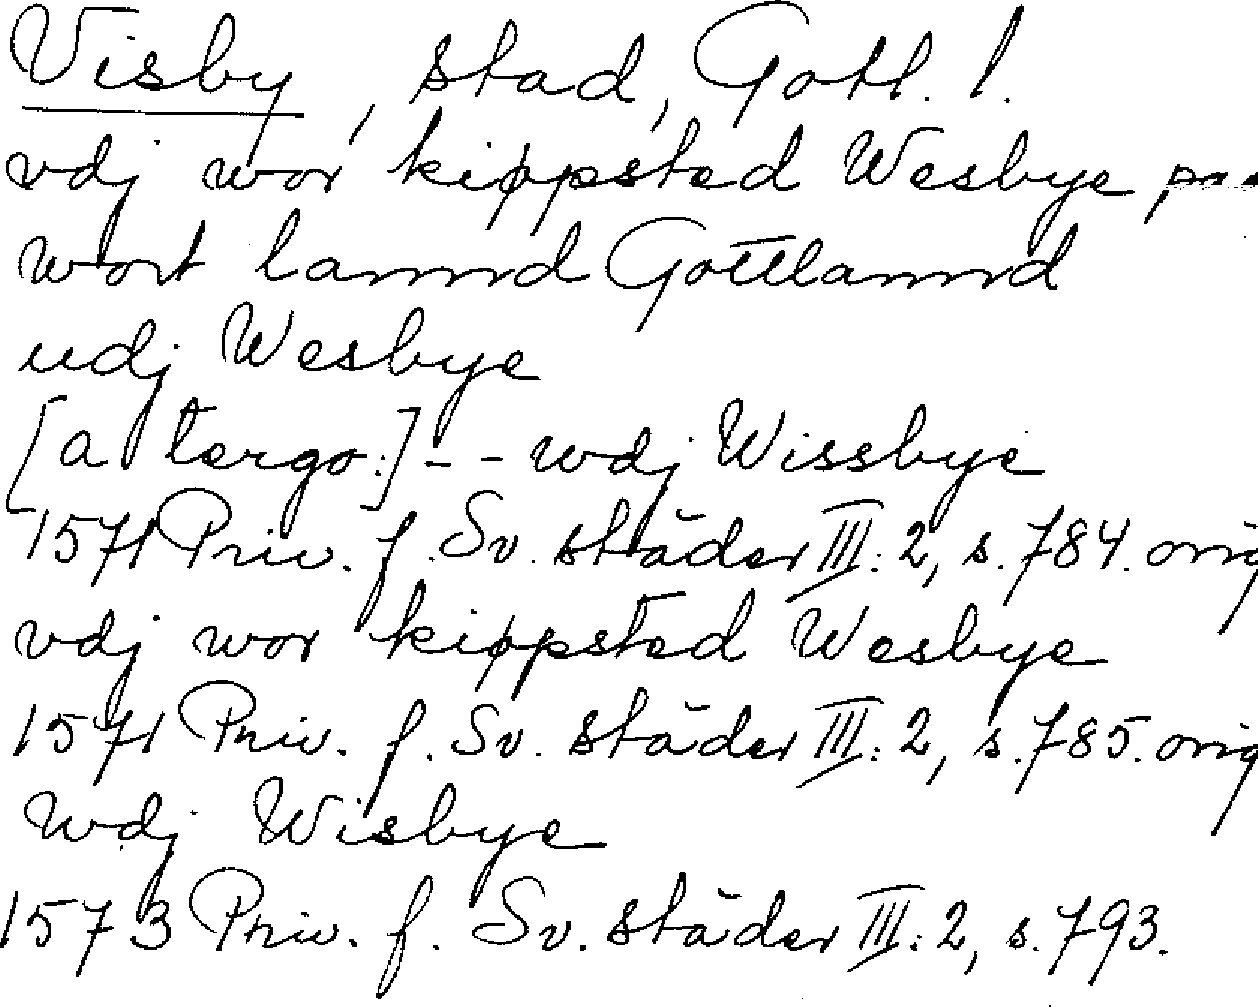 Visby, stad, Gotl. l.
vdj wor kippsted Wesbye paa
wort lannd Gottlannd
udj Wesbye
[a tergo:] - - wdj Wissbye
1571 Priv. f. Sv. städer III: 2, s. 784. orig
vdj wor kippsted Wesbye
1571 Priv. f. Sv. städer III: 2, s. 785. orig
Wdj Wisbye
1573 Priv. f. Sv. städer III: 2, s. 793.